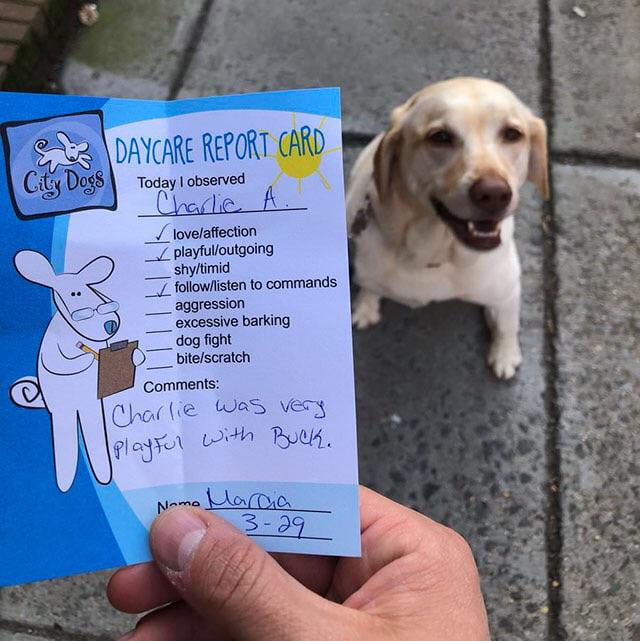 City Dogs
DAYCARE REPORT CARD
Today I observed
Charlie A.
✓ love/affection
✓ playful/outgoing
shy/timid
✓ follow/listen to commands
aggression
excessive barking
dog fight
bite/scratch
Comments:
Charlie was very
playful with Buck.
Name Marcia
3-29